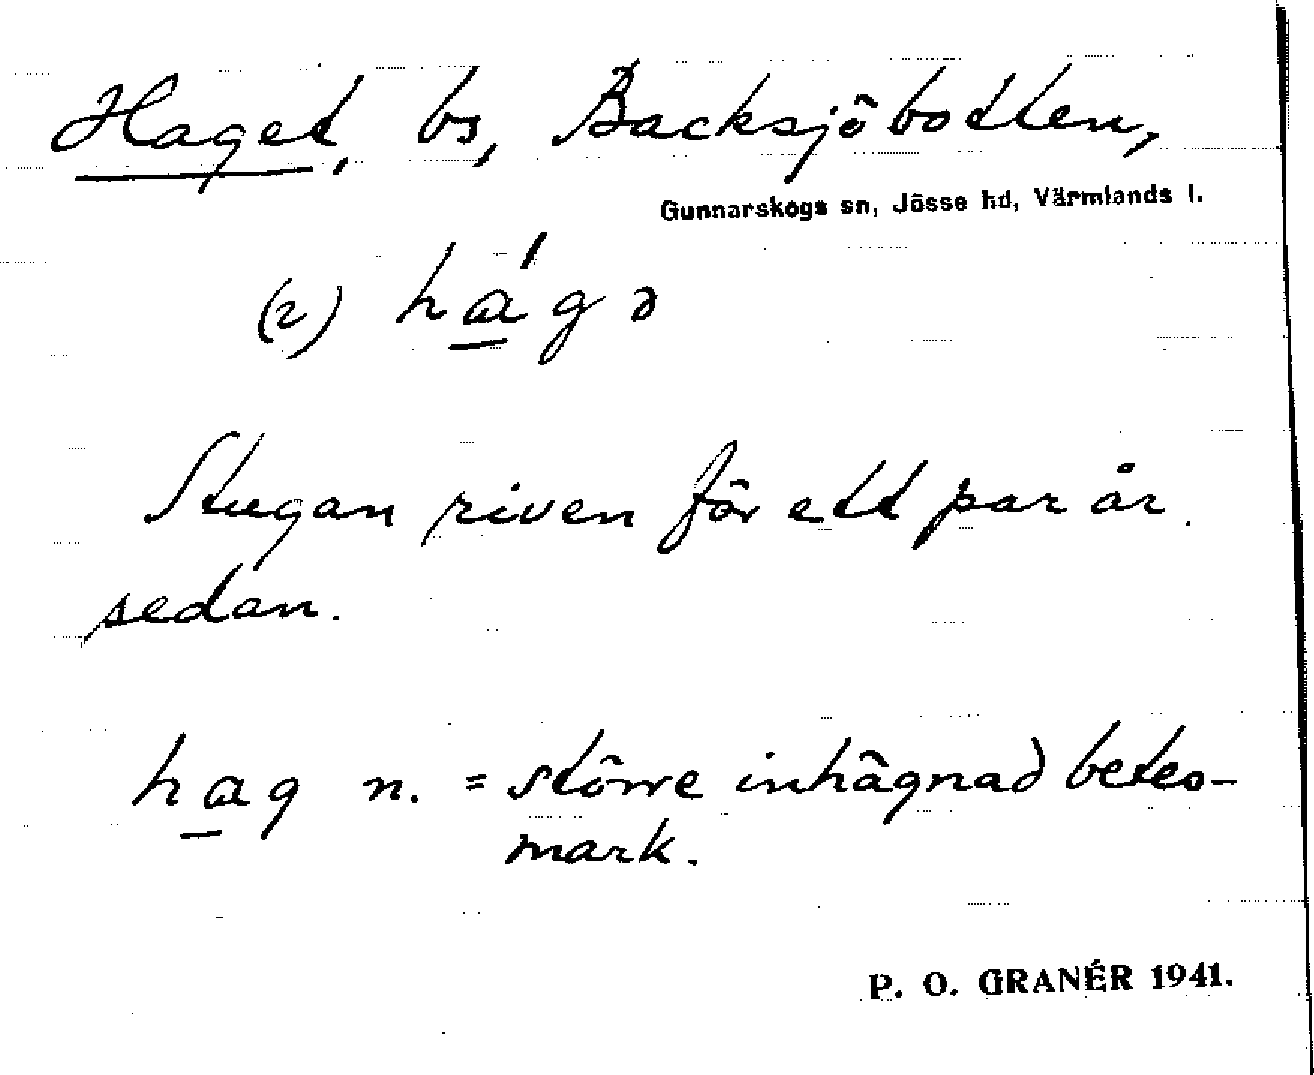 Haget, bs, Backsjöbotten,
Gunnarskogs sn, Jösse hd, Värmlands l.
(2) há̱gə
Stugan riven för ett par år
sedan.
ha̱g n. = större inhägnad betes-
mark.
P. O. GRANÉR 1941.